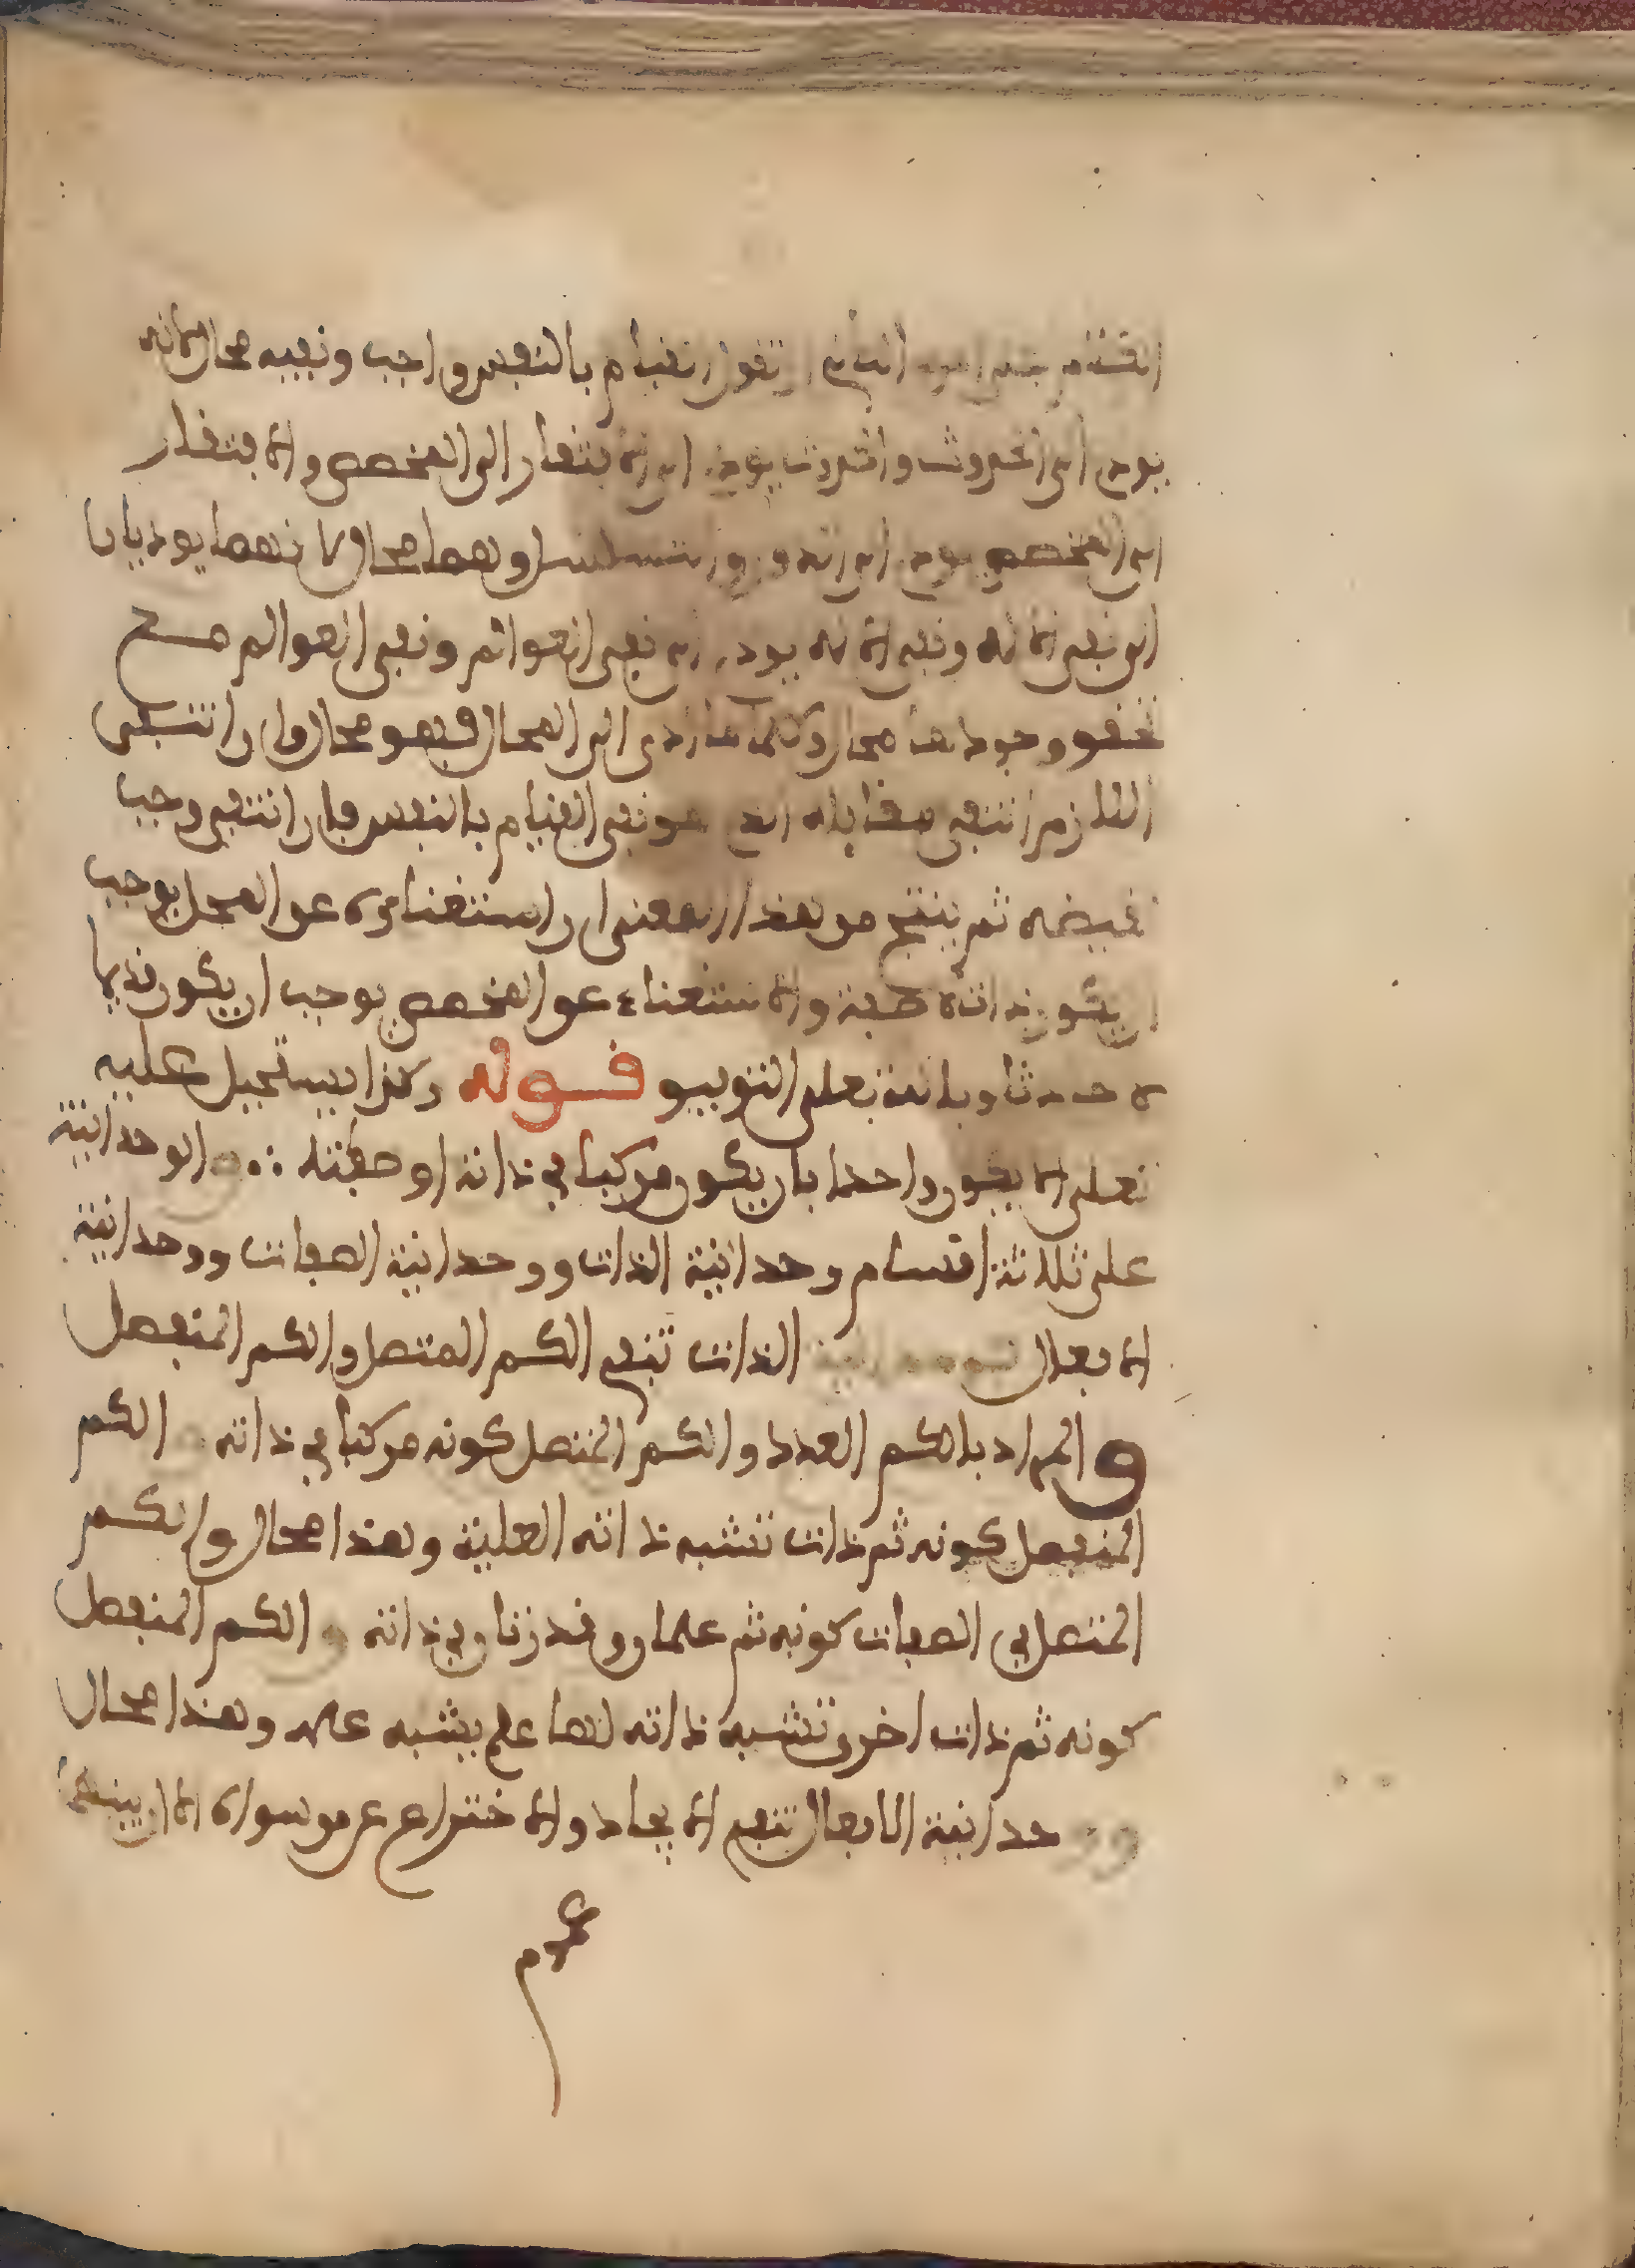 تقول القيام بالنفس واجب ونفيه محال لانه
يودي الى الحدوث والحدوث يودي الى الافتقار الى المخصص والافتقار
الى المخصص يودي الى الدور والتسلسل وهما محالان لانهما يوديان
الى نفي الاله ونفي الاله يودي الى نفي العوالم ونفي العوالم مع
تحقق وجودها محال وكل ما ادى الى المحال فهو محال فان انتفى
اللازم انتفى مقابله الذي هو نفي القيام بالنفس فان انتفى وجب
نقيضه ثم ينتج من هذا المعنى ان استغناءه عن المحل يوجب
ان يكون ذاتا لا صفة والاستغناء عن المخصص يوجب ان يكون قديما
لا حادثا وبالله تعلى التوفيق قوله وكذا يستحيل عليه
تعلى الا يكون واحدا بان يكون مركبا في ذاته او صفته ∴ الوحدانية
على ثلاثة اقسام وحدانية الذات ووحدانية الصفات ووحدانية
الافعال فوحدانية الذات تنفي الكم المتصل والكم المنفصل
والمراد بالكم العدد والكم المتصل كونه مركبا في ذاته و الكم
المنفصل كونه ثم ذات تشبه ذاته العلية وهذا محال والكم
المتصل في الصفات كونه ثم علمان وقدرتان في ذاته و الكم المنفصل
كونه ثم ذات اخرى تشبه ذاته لها علم يشبه علمه وهذا محال
ووحدانية الافعال تنفي الايجاد والاختراع عن من سواه لا